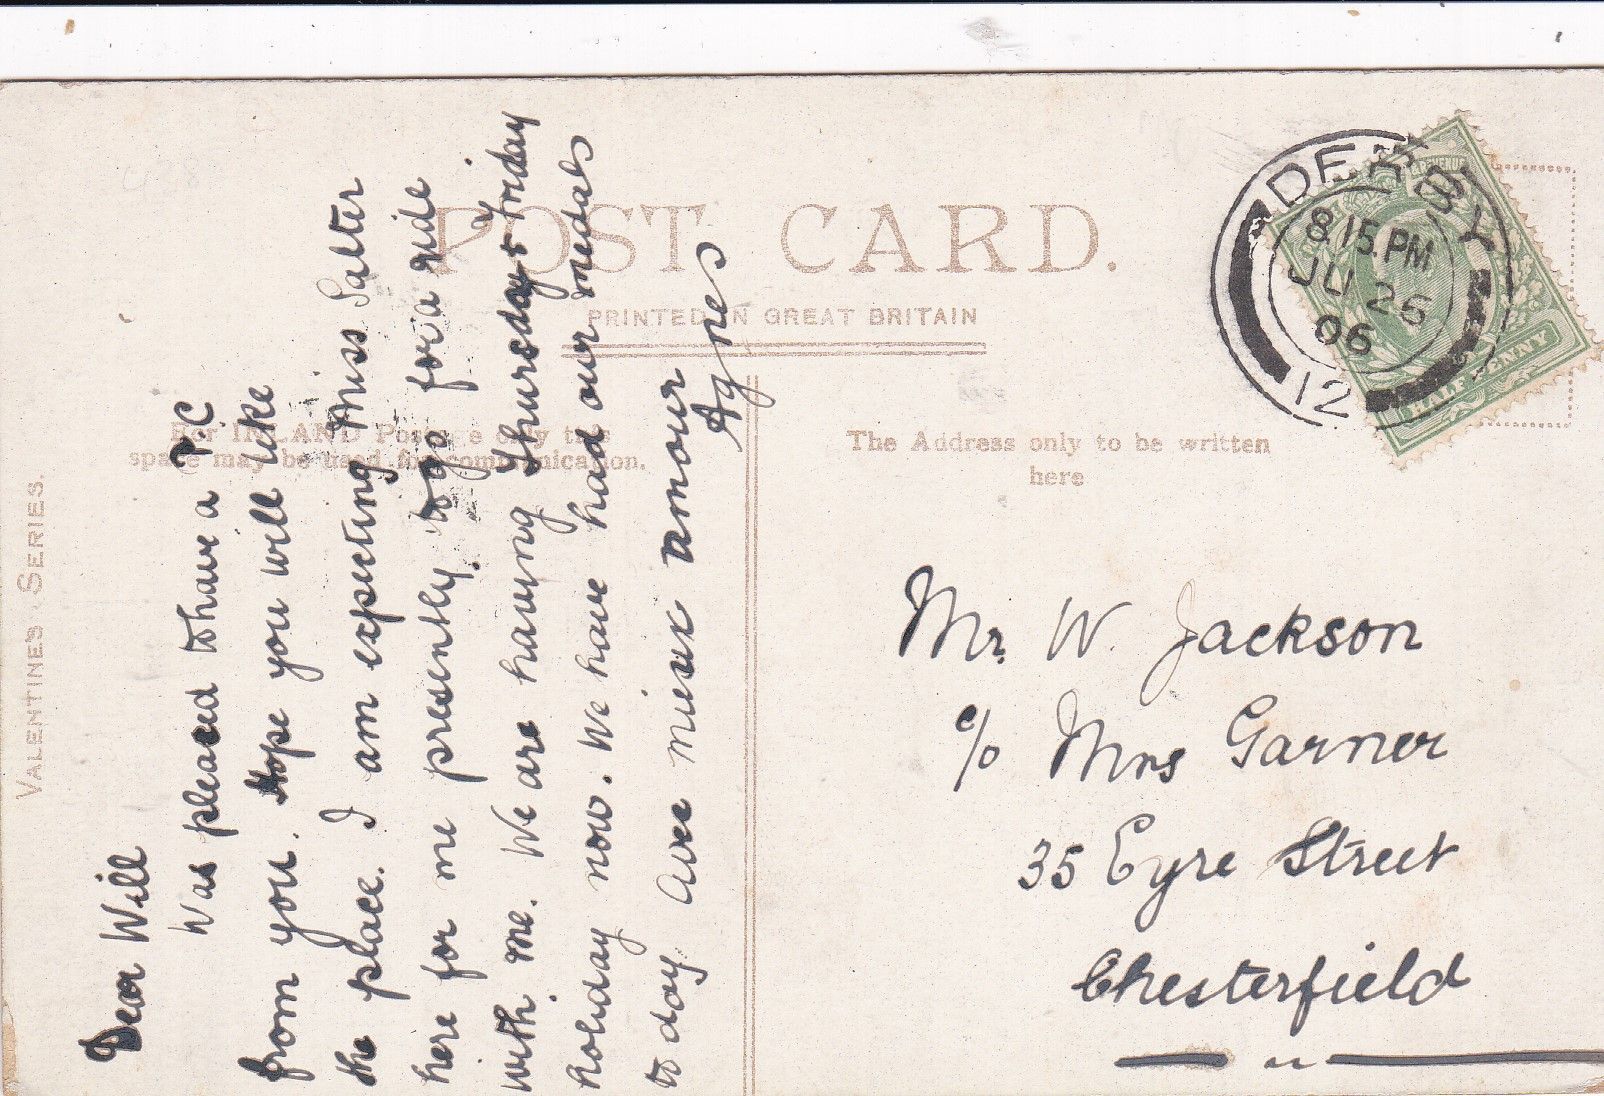 VALENTINE'S SERIES.
POST CARD.
PRINTED IN GREAT BRITAIN
For IRELAND Postage only this
space may be used for communication.
The Address only to be written
here
DERBY
8.15 PM
JU 26
06
12
REVENUE
HALF PENNY
Dear Will
Was pleased to have a PC
from you. Hope you will like
the place. I am expecting Miss Salter
here for me presently, to go for a ride
with me. We are having Thursday & Friday
holiday now. We have had our medals
to day Avec mieux amour
Agnes
Mr. W. Jackson
c/o Mrs Garner
35 Eyre Street
Chesterfield